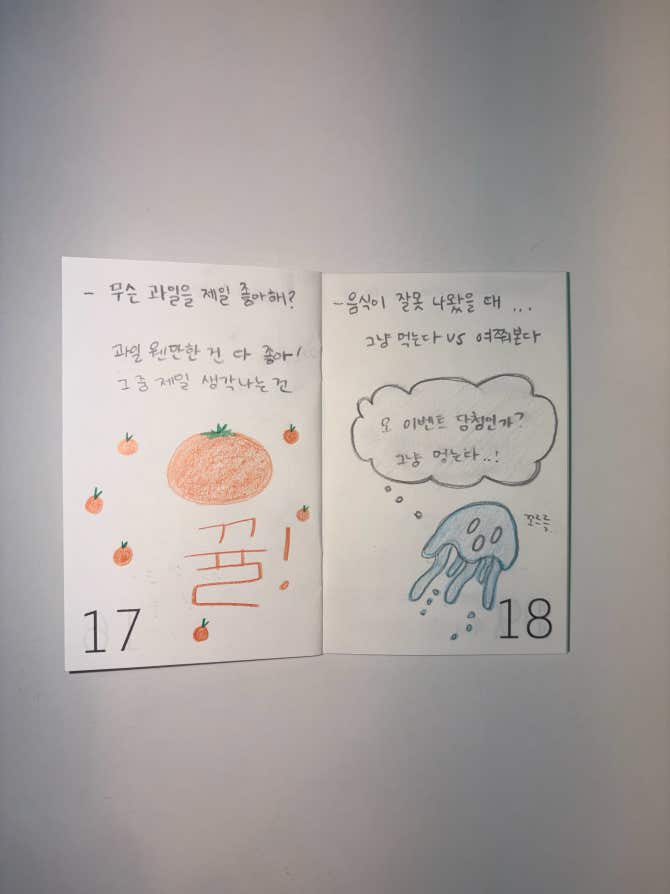 - 무슨 과일을 제일 좋아해?
과일 웬만한 건 다 좋아!
그 중 제일 생각나는 건
귤!
17
- 음식이 잘못 나왔을 때 ...
그냥 먹는다 vs 여쭤본다
오 이벤트 당첨인가?
그냥 먹는다..!
꼬르륵
18